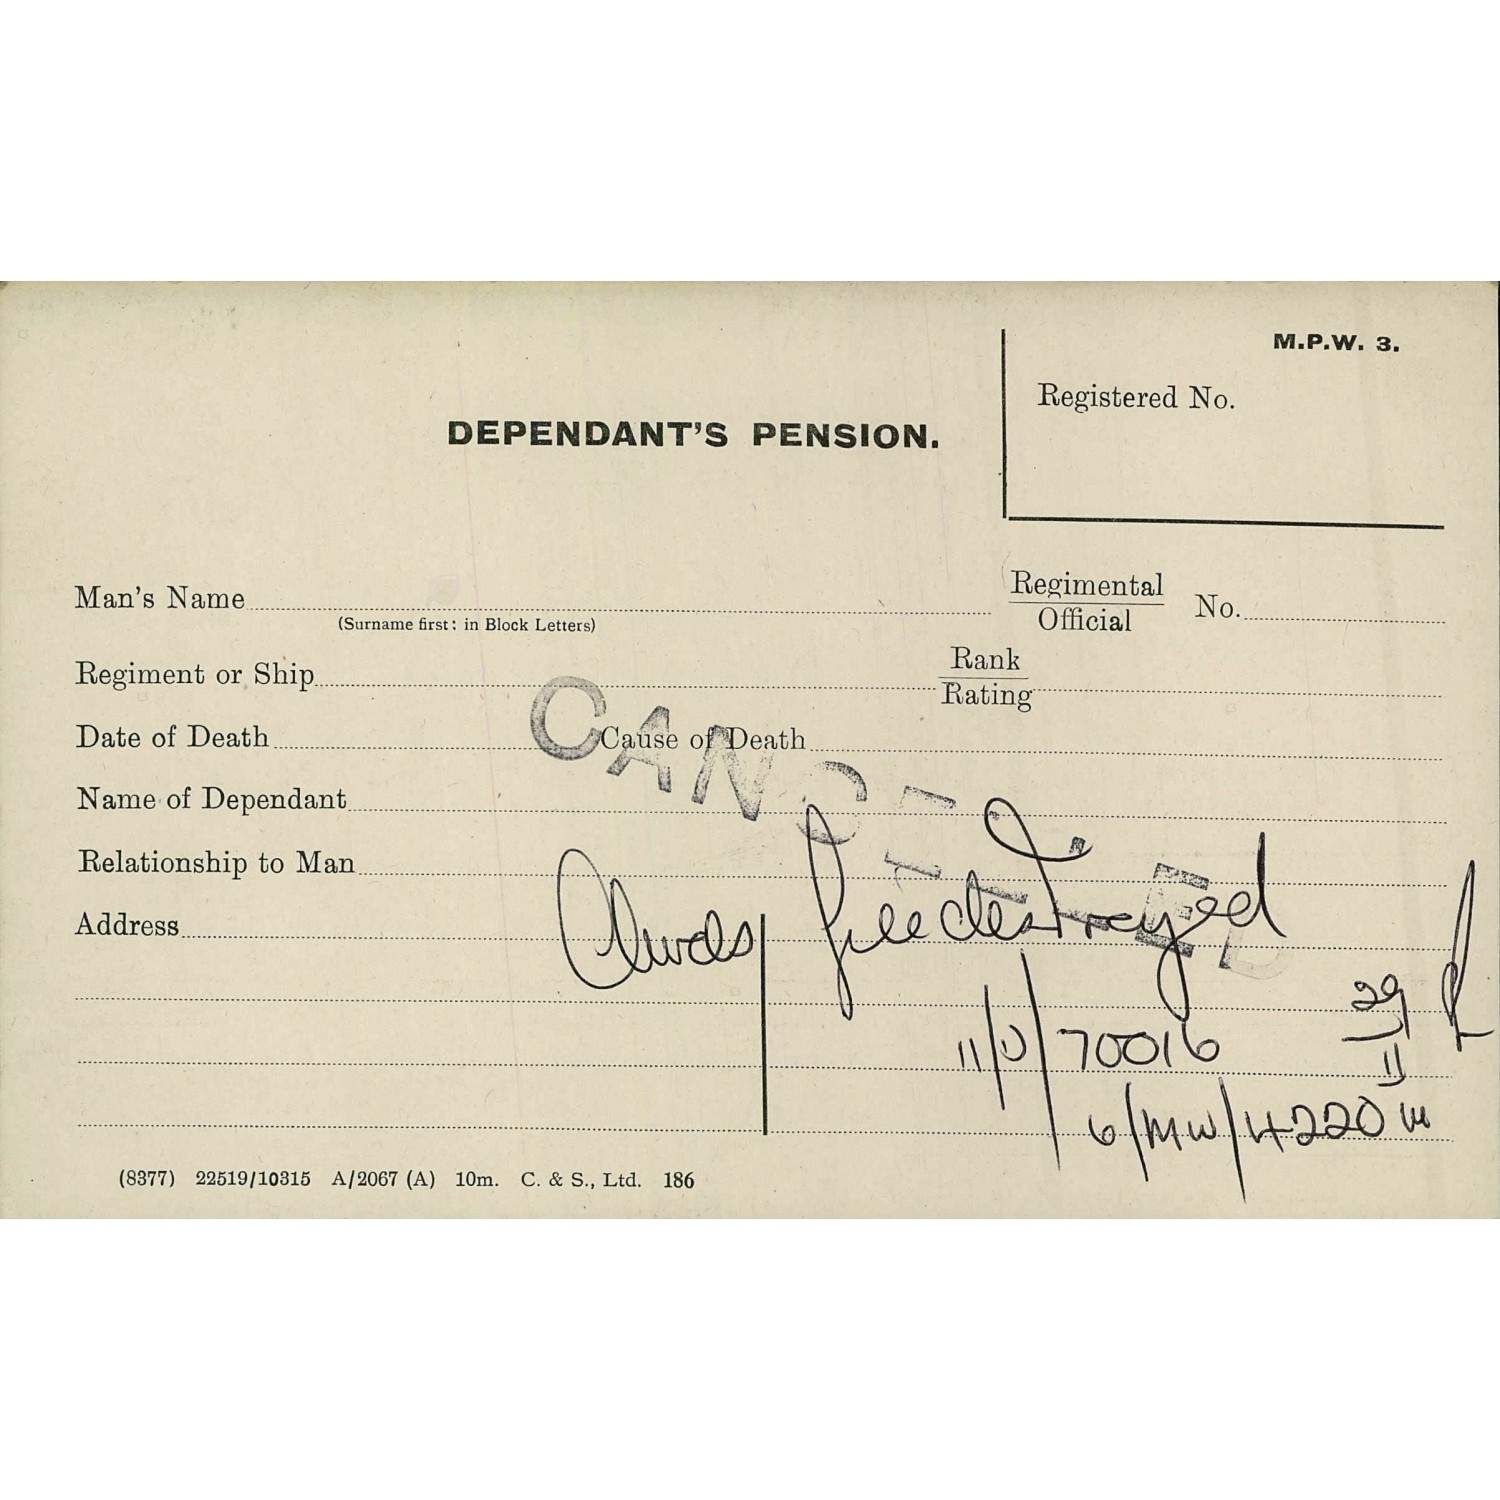 M.P.W. 3.
Registered No.
DEPENDANT'S PENSION.
Man's Name
(Surname first: in Block Letters)
Regimental
Official
No.
Regiment or Ship
Rank
Rating
Date of Death
Cause of Death
CANCELLED
Name of Dependant
Relationship to Man
Address
file destroyed
11/D/70016
29
11
6/MW/4220
(8377) 22519/10315 A/2067 (A) 10m. C. & S., Ltd. 186